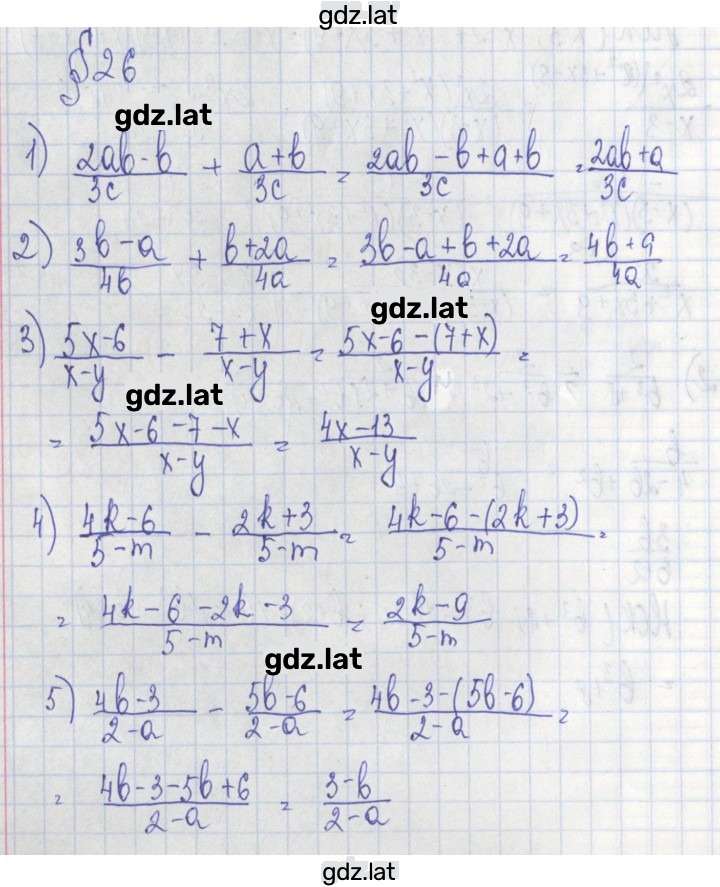 gdz.lat
§26
gdz.lat
1) (2ab-b)/(3c) + (a+b)/(3c) = (2ab-b+a+b)/(3c) = (2ab+a)/(3c)
2) (3b-a)/(4b) + (b+2a)/(4a) = (3b-a+b+2a)/(4a) = (4b+a)/(4a)
gdz.lat
3) (5x-6)/(x-y) - (7+x)/(x-y) = (5x-6-(7+x))/(x-y) =
gdz.lat
= (5x-6-7-x)/(x-y) = (4x-13)/(x-y)
4) (4k-6)/(5-m) - (2k+3)/(5-m) = (4k-6-(2k+3))/(5-m) =
= (4k-6-2k-3)/(5-m) = (2k-9)/(5-m)
gdz.lat
5) (4b-3)/(2-a) - (5b-6)/(2-a) = (4b-3-(5b-6))/(2-a) =
= (4b-3-5b+6)/(2-a) = (3-b)/(2-a)
gdz.lat